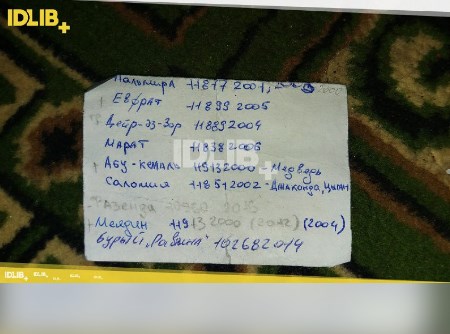 IDLIB+
Пальмира 11877 2001,
Евфрат 11899 2005
Дейр-эз-Зор 11889 2004
Марат 11898 2006
Абу-Кемаль 119132000 Медведь
Саломия 11851 2002 - Джаконда, Цыган
IDLIB+
Меядин 119132000 (2002) (2004)
Бурый "Равнина" 102682014
IDLIB+